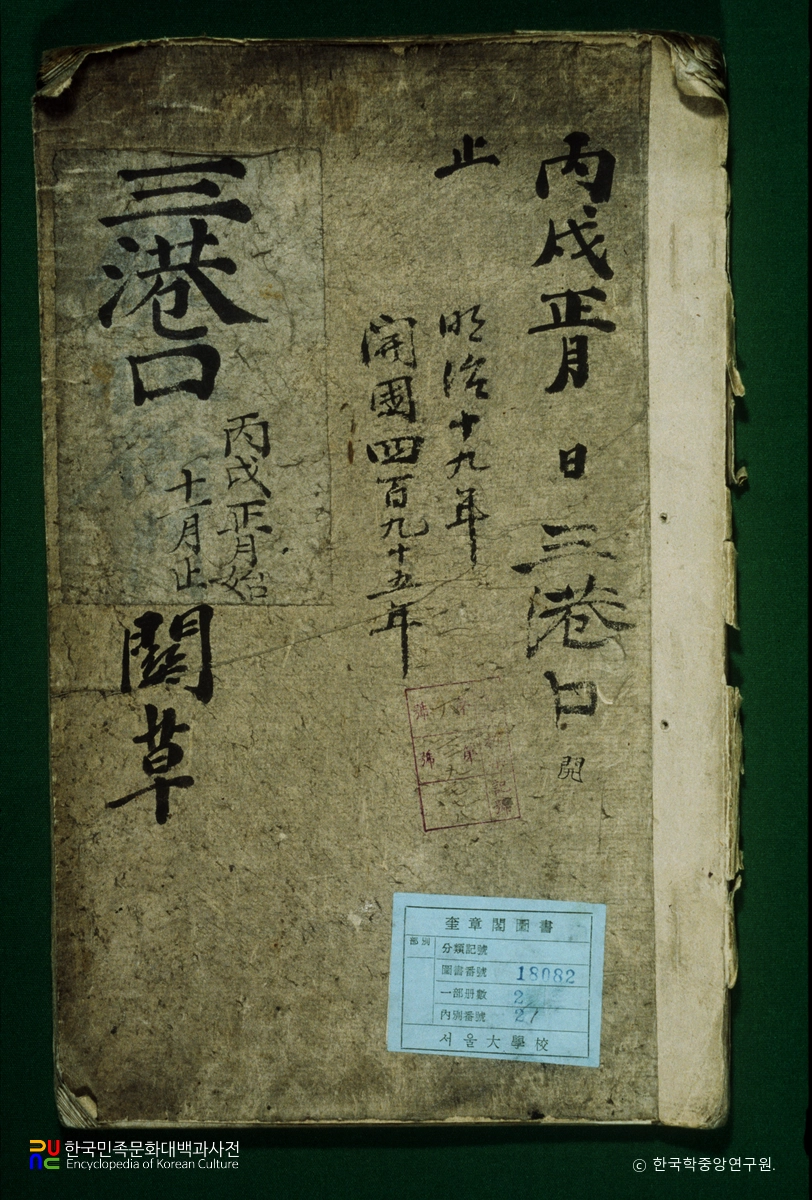 丙戌正月 日 三港口
關
止
明治十九年
開國四百九十五年
三港口
丙戌正月始
十一月止
關草
號
號
奎章閣圖書
部別
分類記號
圖書番號 18082
一部册數 2
內別番號 2/
서울大學校
한국민족문화대백과사전
Encyclopedia of Korean Culture
© 한국학중앙연구원.